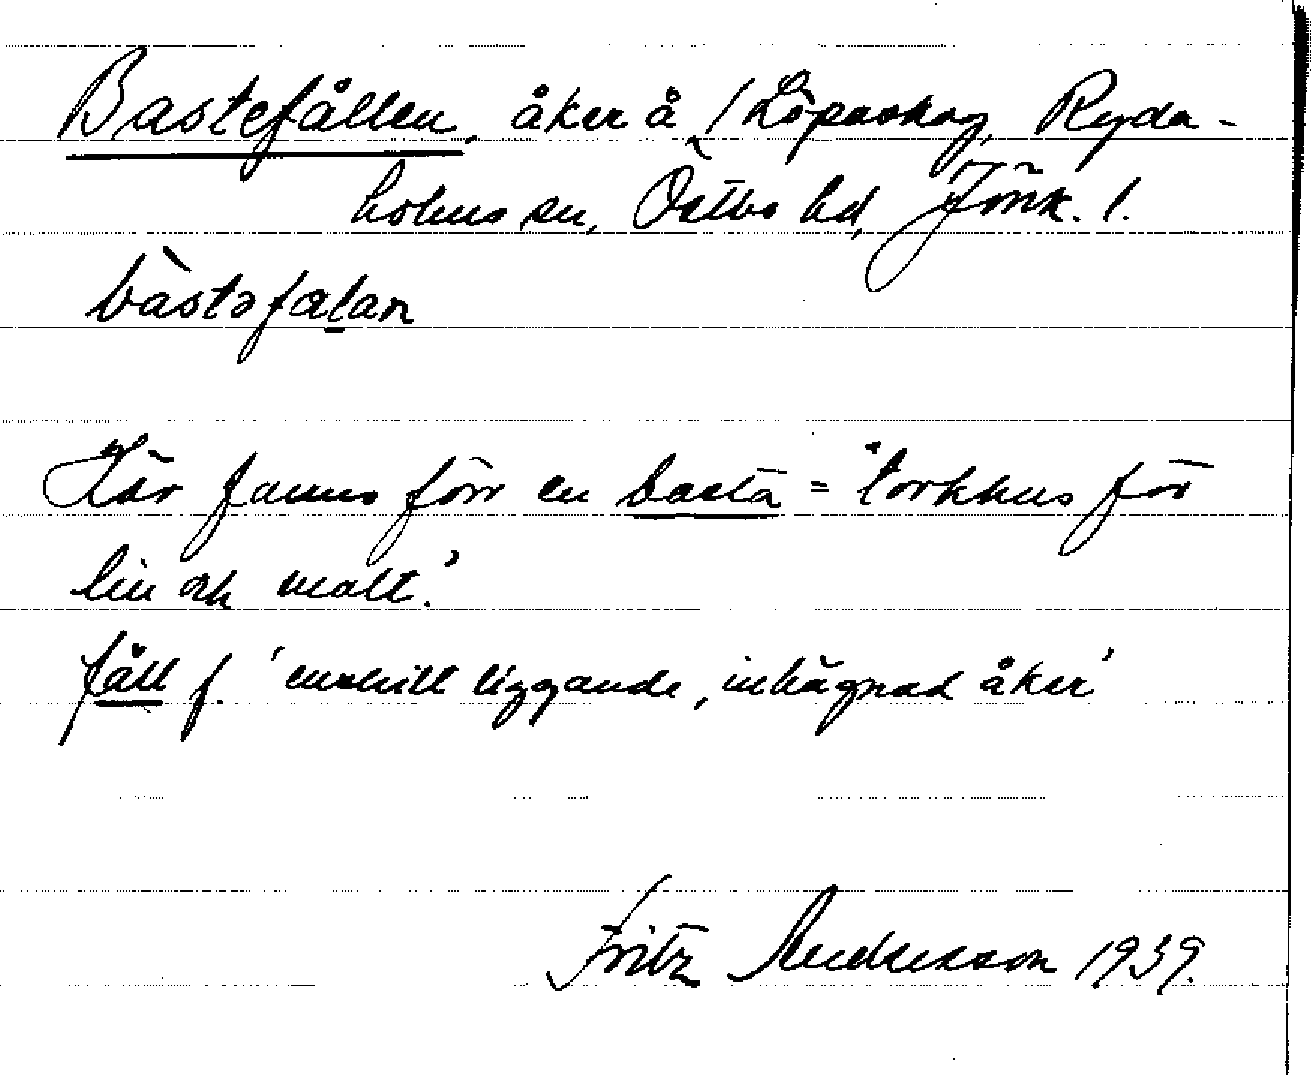 Bastefållen, åker å Löpaskog, Ryda-
holms sn, Östbo hd, Jönk. l.
bàstəfalan
Här fanns förr en basta = 'torkhus för
lin och malt.'
fåll f. 'enskilt liggande, inhägnad åker'
Fritz Andersson 1939.